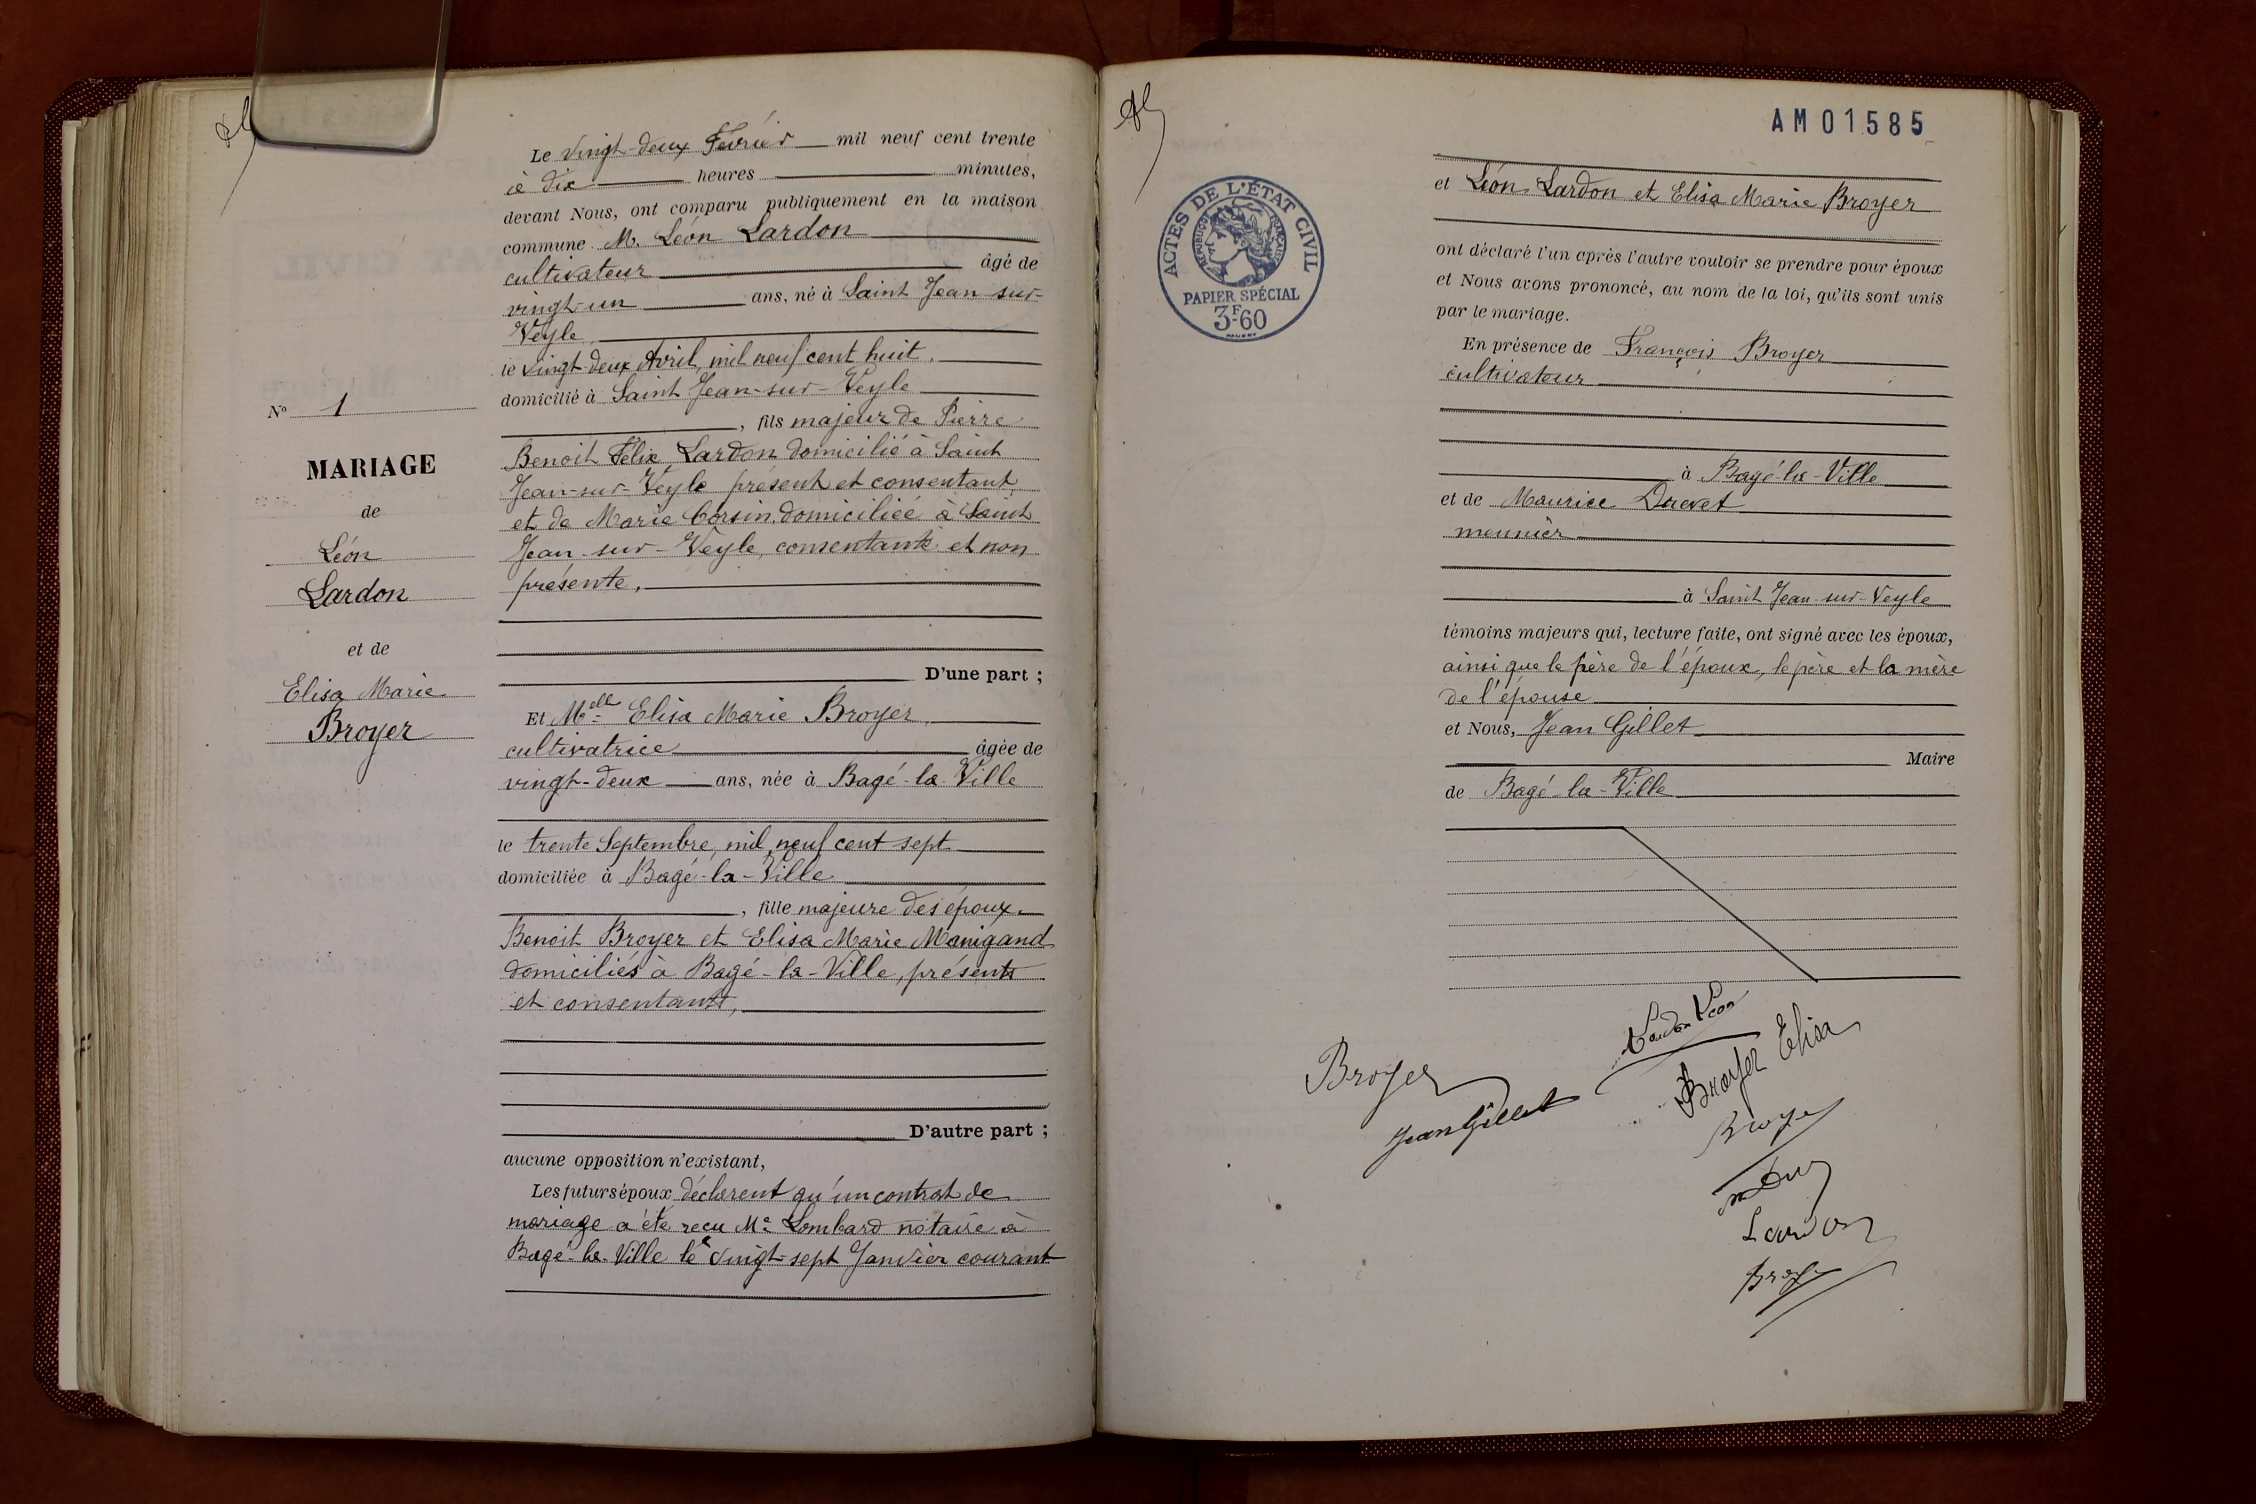 Le vingt-deux Février mil neuf cent trente
à dix heures minutes,
devant Nous, ont comparu publiquement en la maison
commune M. Léon Lardon
cultivateur âgé de
vingt-un ans, né à Saint Jean-sur-
Veyle
le vingt-deux Avril, mil neuf cent huit.
domicilié à Saint Jean-sur-Veyle
, fils majeur de Pierre
Benoit Félix Lardon domicilié à Saint
Jean-sur-Veyle présent et consentant
et de Marie Corsin, domiciliée à Saint
Jean-sur-Veyle, consentante et non
présente.
D'une part ;
Et Melle Elisa Marie Broyer,
cultivatrice âgée de
vingt-deux ans, née à Bagé-la-Ville
le trente Septembre, mil neuf cent sept
domiciliée à Bagé-la-Ville
, fille majeure des époux
Benoit Broyer et Elisa Marie Manigand
domiciliés à Bagé-la-Ville, présents
et consentants,
D'autre part ;
aucune opposition n'existant,
Les futurs époux déclarent qu'un contrat de
mariage a été reçu Me Lombard notaire à
Bagé-la-Ville le vingt-sept Janvier courant
No 1
MARIAGE
de
Léon
Lardon
et de
Elisa Marie
Broyer
AM01585
ACTES DE L'ÉTAT CIVIL
RÉPUBLIQUE FRANÇAISE
PAPIER SPÉCIAL
3F60
et Léon Lardon et Elisa Marie Broyer
ont déclaré l'un après l'autre vouloir se prendre pour époux
et Nous avons prononcé, au nom de la loi, qu'ils sont unis
par le mariage.
En présence de François Broyer
cultivateur
à Bagé-la-Ville
et de Maurice Ducret
meunier
à Saint Jean-sur-Veyle
témoins majeurs qui, lecture faite, ont signé avec les époux,
ainsi que le père de l'époux, le père et la mère
de l'épouse
et Nous, Jean Gillet
Maire
de Bagé-la-Ville
Lardon Léon
Broyer
Broyer Elisa
Jean Gillet
Broyer
Lardon
Broyer